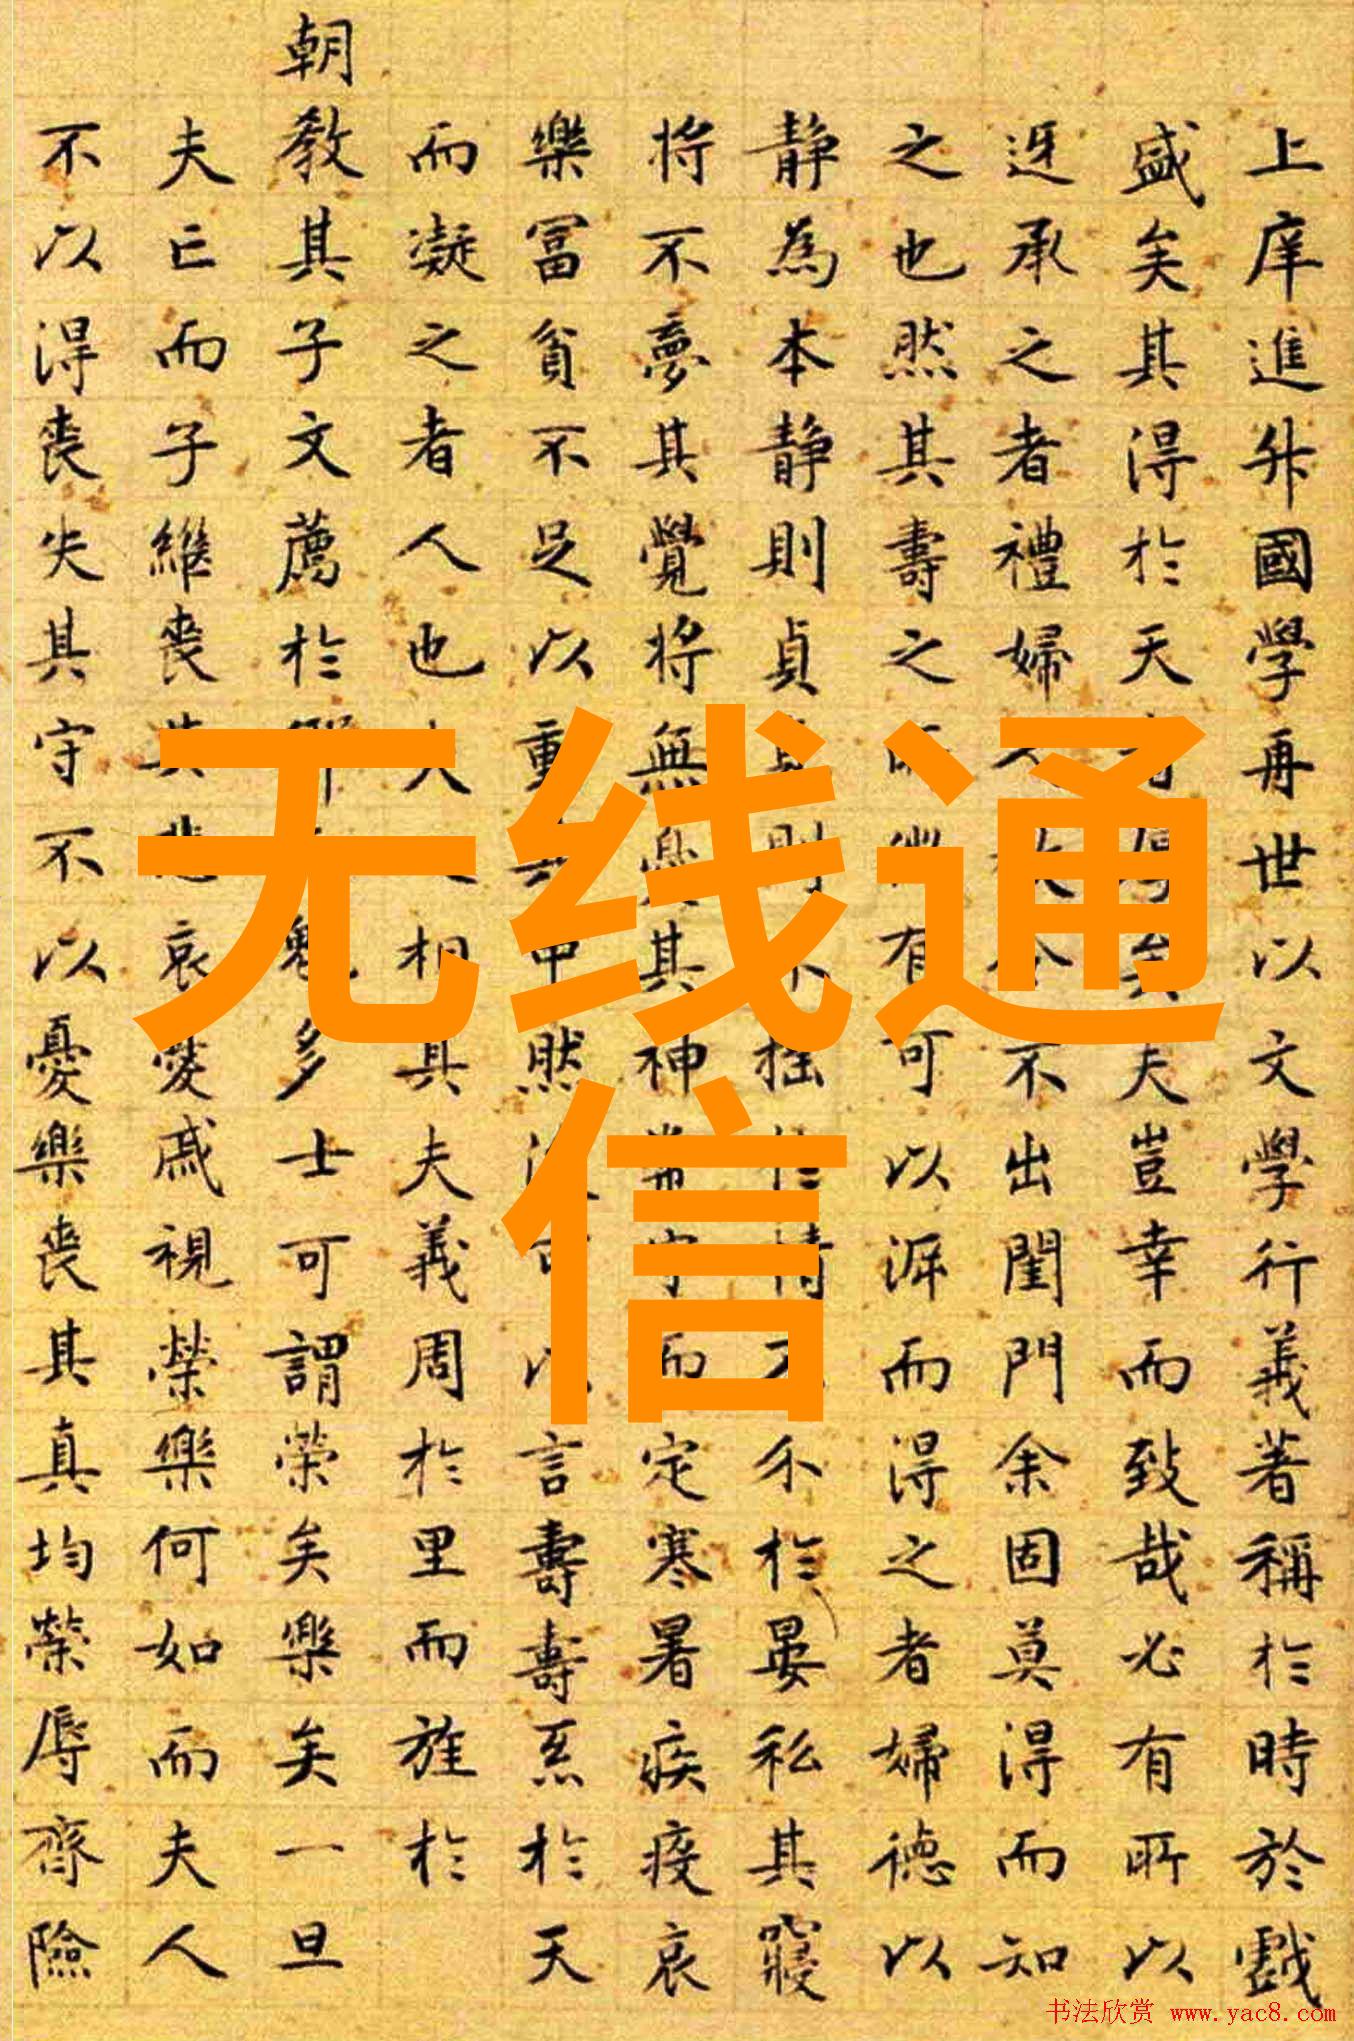 上庠進升國學再世以文學行義著稱於時於戲
盛矣其得於天者得矣夫豈幸而致哉必有所以
迓承之者禮婦人教令不出閨門余固莫得而知
之也然其壽之所徵有可以涯而得之者婦德以
静為本静則貞貞則不揺性情不分於晏私其寢
将不夢其覺将無憂其神常守而定寒暑疾疫哀
樂冨貧不足以重其中然後可以言壽壽烝於天
而凝之者人也夫人相其夫義周於里而旌於
朝教其子文薦於多士可謂荣矣樂矣一旦
夫亡而子継丧其悲哀愛戚視榮樂何如而夫人
不以得丧失其守不以憂樂丧其真均榮辱齊險
无线通
信
书法欣赏 www.yac8.com